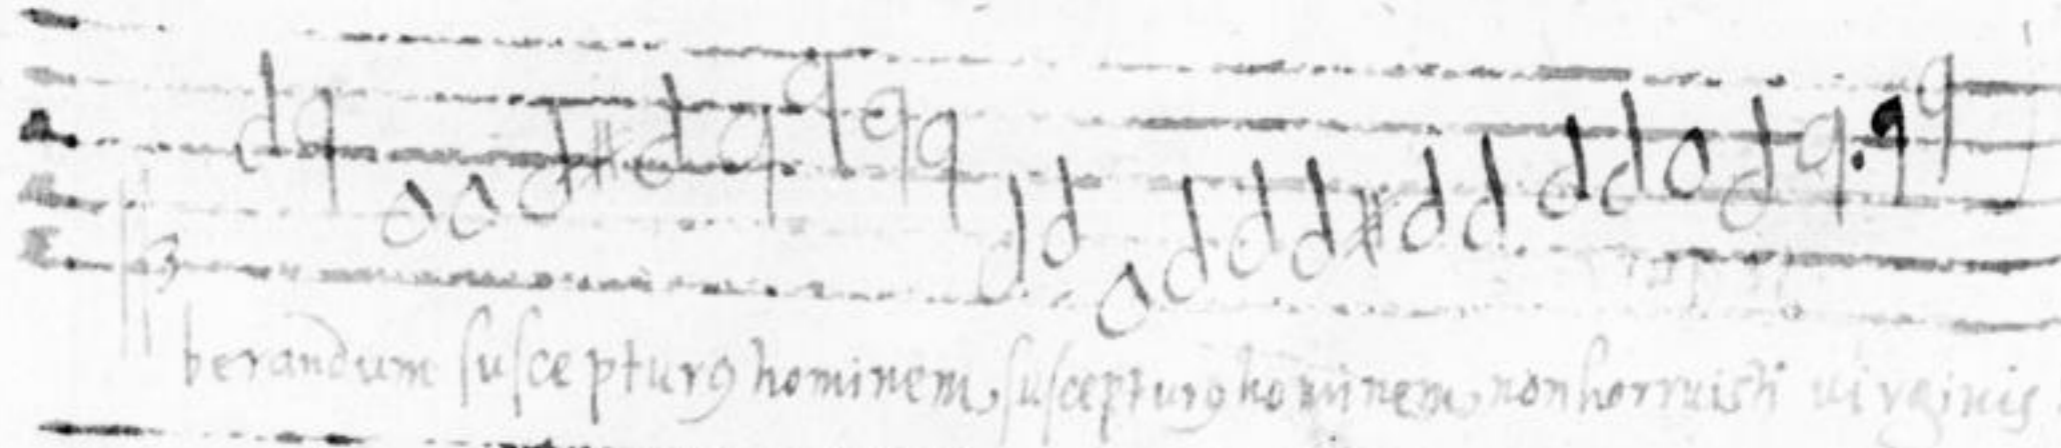 berandum suscepturꝰ hominem, suscepturꝰ hominem, non horruisti virginis